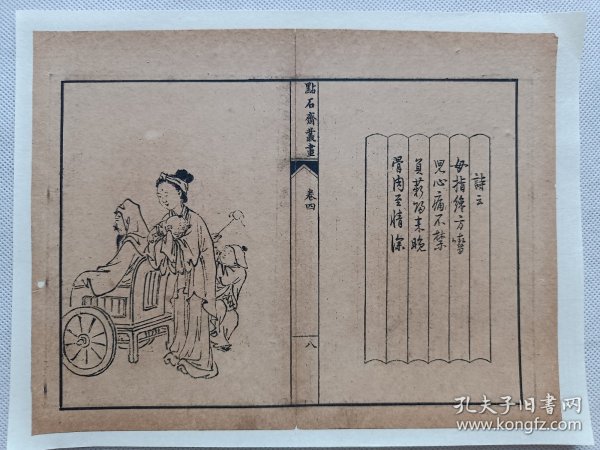 詩云
母指纔方嚙
兒心痛不禁
負薪歸未晚
骨肉至情深
點石齋叢畫
卷四
八
孔夫子旧书网
www.kongfz.com